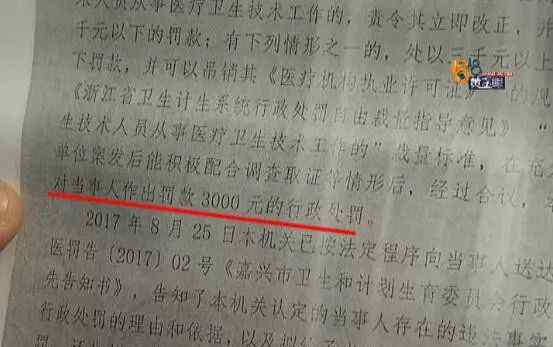 术人员从事医疗卫生技术工作的，责令其立即改正，并
千元以下的罚款；有下列情形之一的，处以三千元以上
下罚款，并可以吊销其《医疗机构执业许可证》
《浙江省卫生计生系统行政处罚自由裁量指导意见》“
生技术人员从事医疗卫生技术工作的”裁量标准，在
单位案发后能积极配合调查取证等情形后，经过合议，
对当事人作出罚款 3000 元的行政处罚。
2017 年 8 月 25 日本机关已按法定程序向当事人送达
医罚告〔2017〕02 号《嘉兴市卫生和计划生育委员会行政
先告知书》，告知了本机关认定的当事人存在的违法事实
行政处罚的理由和依据，以及